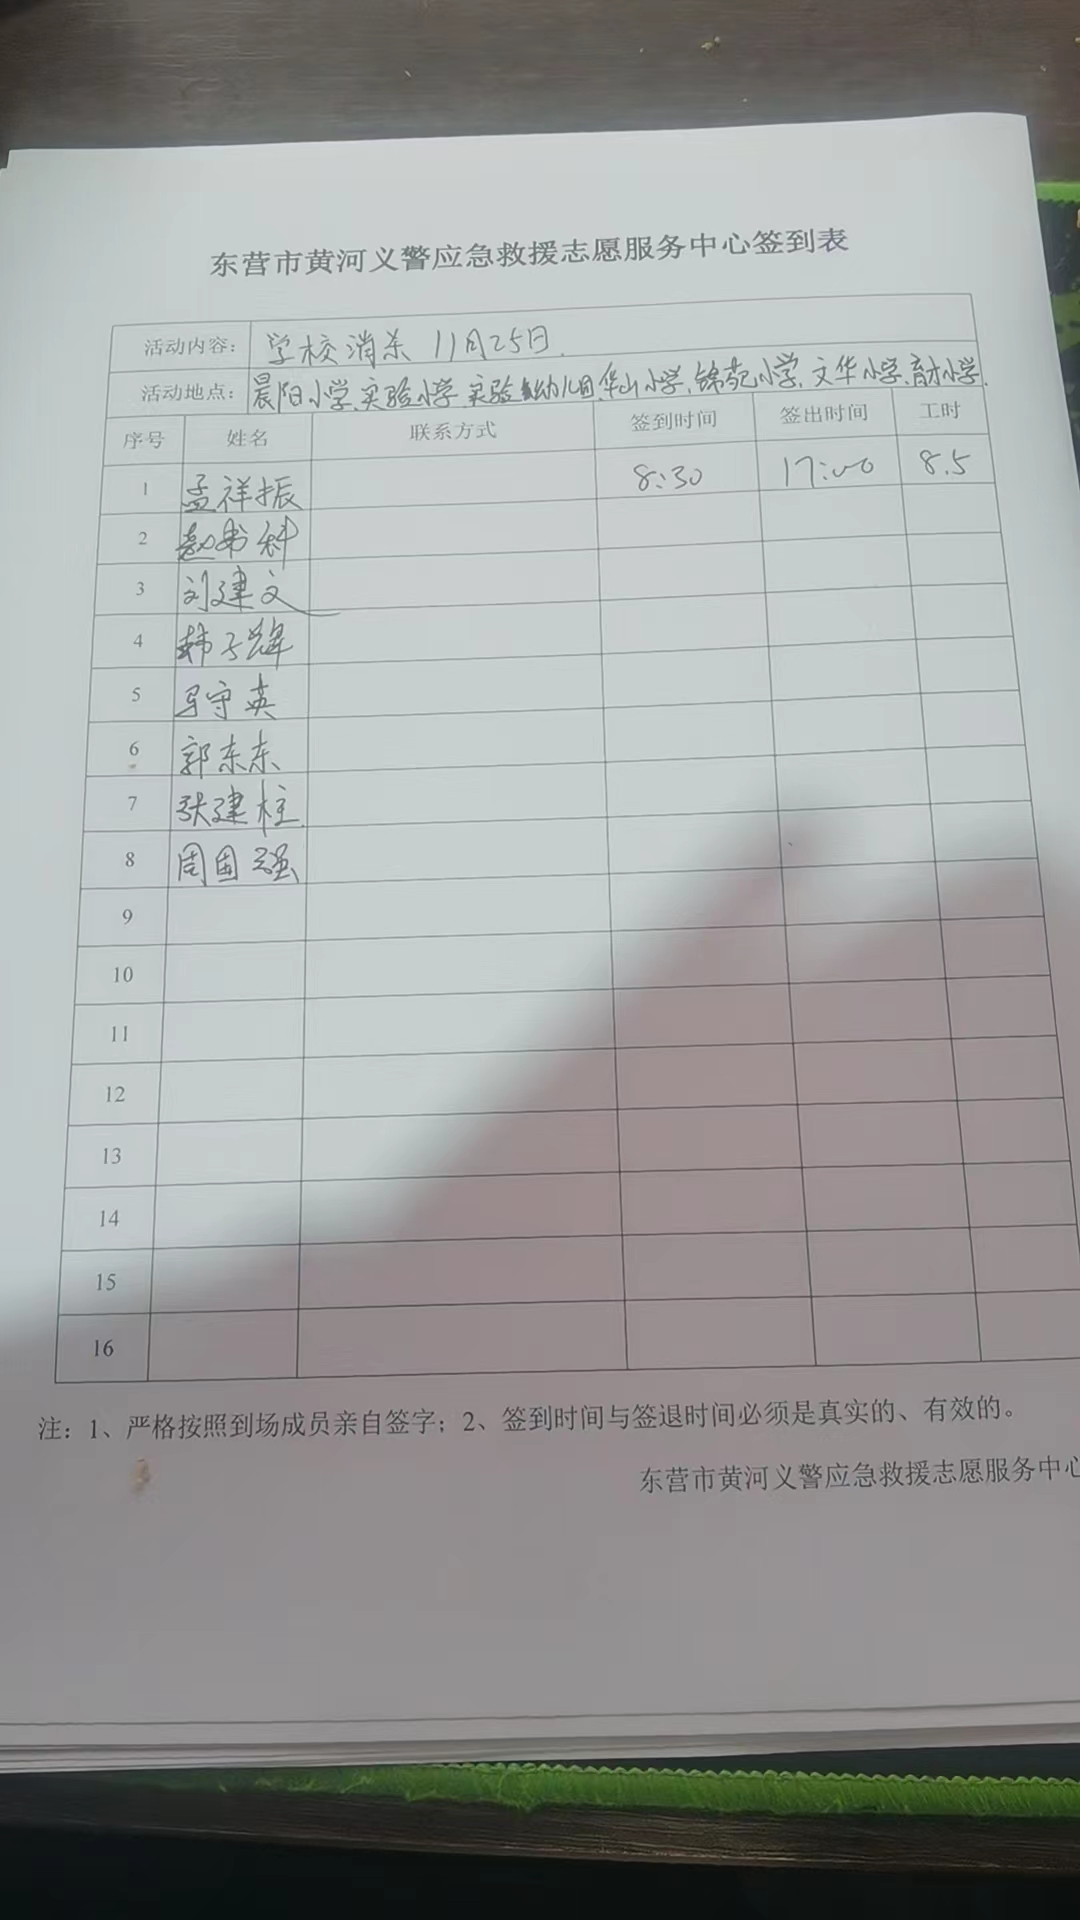 东营市黄河义警应急救援志愿服务中心签到表
活动内容： 学校消杀 11月25日.
活动地点： 晨阳小学、实验小学、实验幼儿园、华山小学、锦苑小学、文华小学、育才小学.
序号 姓名 联系方式 签到时间 签出时间 工时
1 孟祥振 8:30 17:00 8.5
2 赵书科
3 刘建文
4 韩子辉
5 马守英
6 郭东东
7 张建柱
8 周国强
9
10
11
12
13
14
15
16
注：1、严格按照到场成员亲自签字；2、签到时间与签退时间必须是真实的、有效的。
东营市黄河义警应急救援志愿服务中心